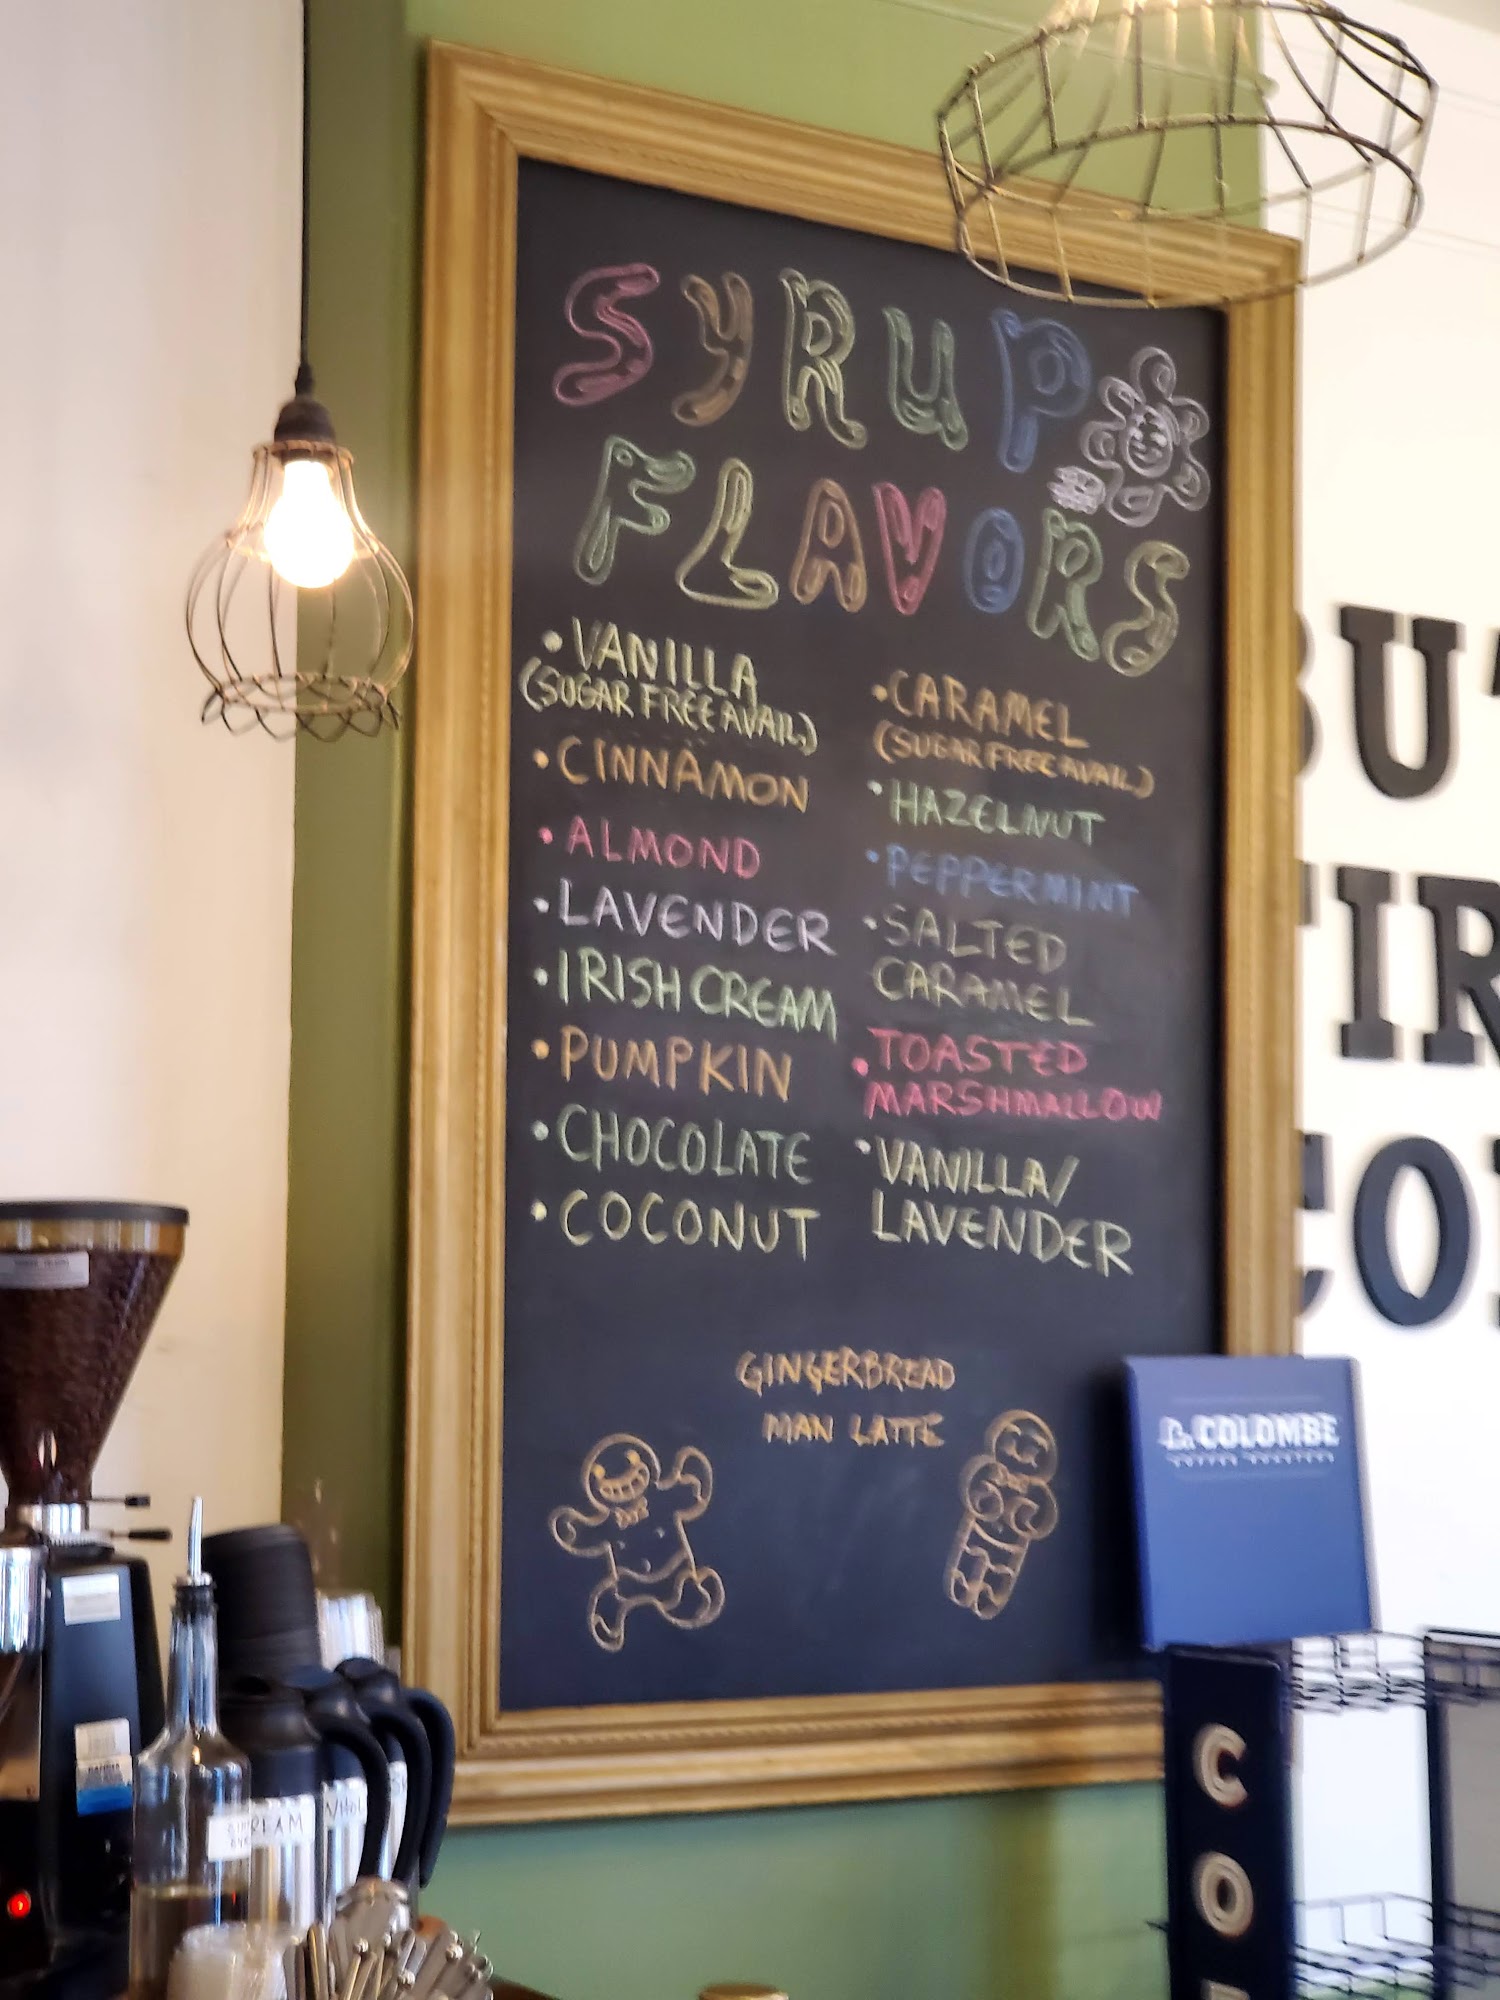 SYRUP
FLAVORS
• VANILLA
(SUGAR FREE AVAIL.)
• CINNAMON
• ALMOND
• LAVENDER
• IRISH CREAM
• PUMPKIN
• CHOCOLATE
• COCONUT
• CARAMEL
(SUGAR FREE AVAIL.)
• HAZELNUT
• PEPPERMINT
• SALTED
CARAMEL
• TOASTED
MARSHMALLOW
• VANILLA/
LAVENDER
GINGERBREAD
MAN LATTE
La COLOMBE
COFFEE ROASTERS